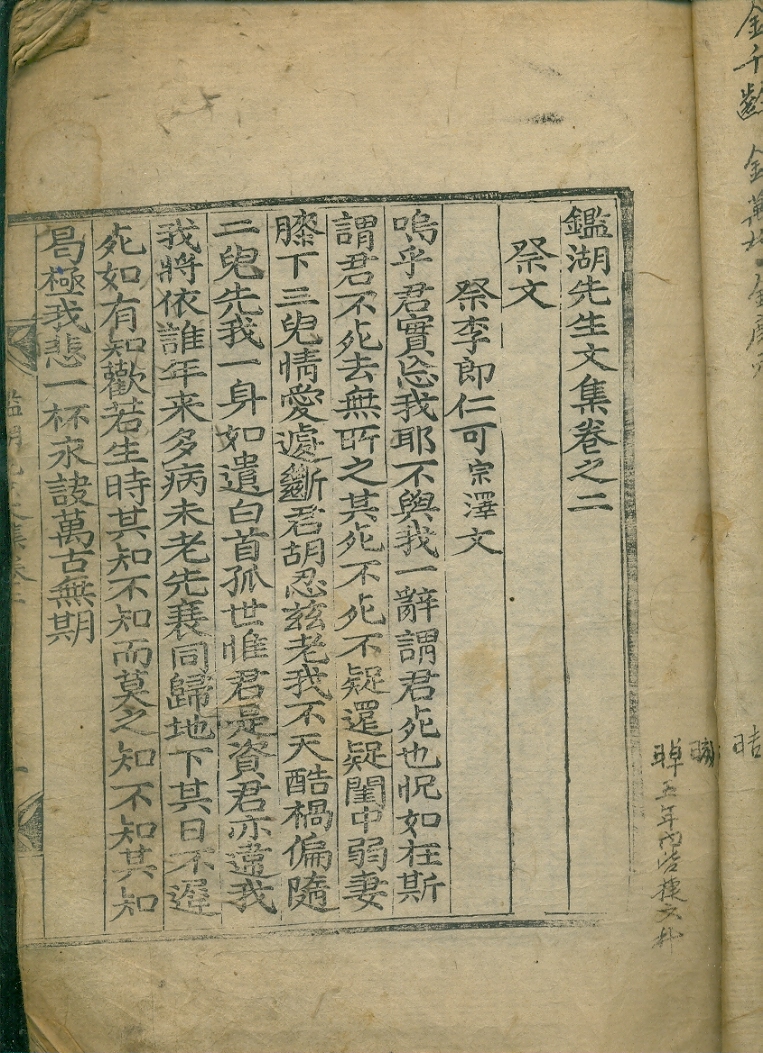 金千齡 金萬
晧
鑑湖先生文集卷之二
祭文
祭李郎仁可宗澤文
嗚乎君實忘我耶不與我一辭謂君死也怳如在斯
謂君不死去無所之其死不死不疑還疑閨中弱妻
膝下三兒情愛遽斷君胡忍玆老我不天酷禍偏隨
二兒先我一身如遺白首孤世惟君是資君亦違我
我將依誰年来多病未老先衰同歸地下其日不遲
死如有知歡若生時其知不知而莫之知不知其知
曷極我悲一杯永訣萬古無期
鑑湖先生文集卷二
五年內皆